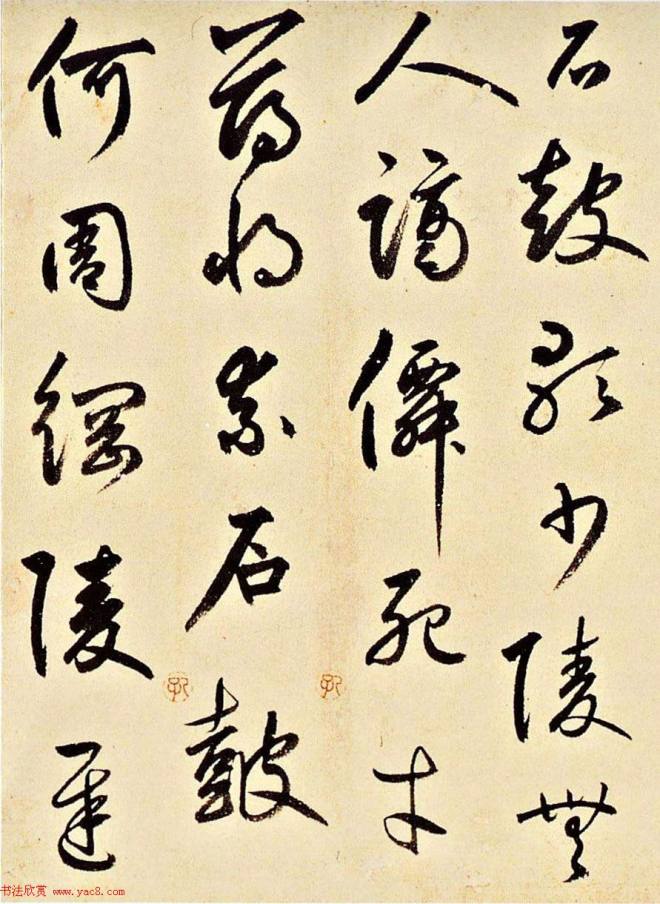 石鼓歌少陵無
人謫僊死才
薄將奈石鼓
何周綱陵遲
书法欣赏 www.yac8.com